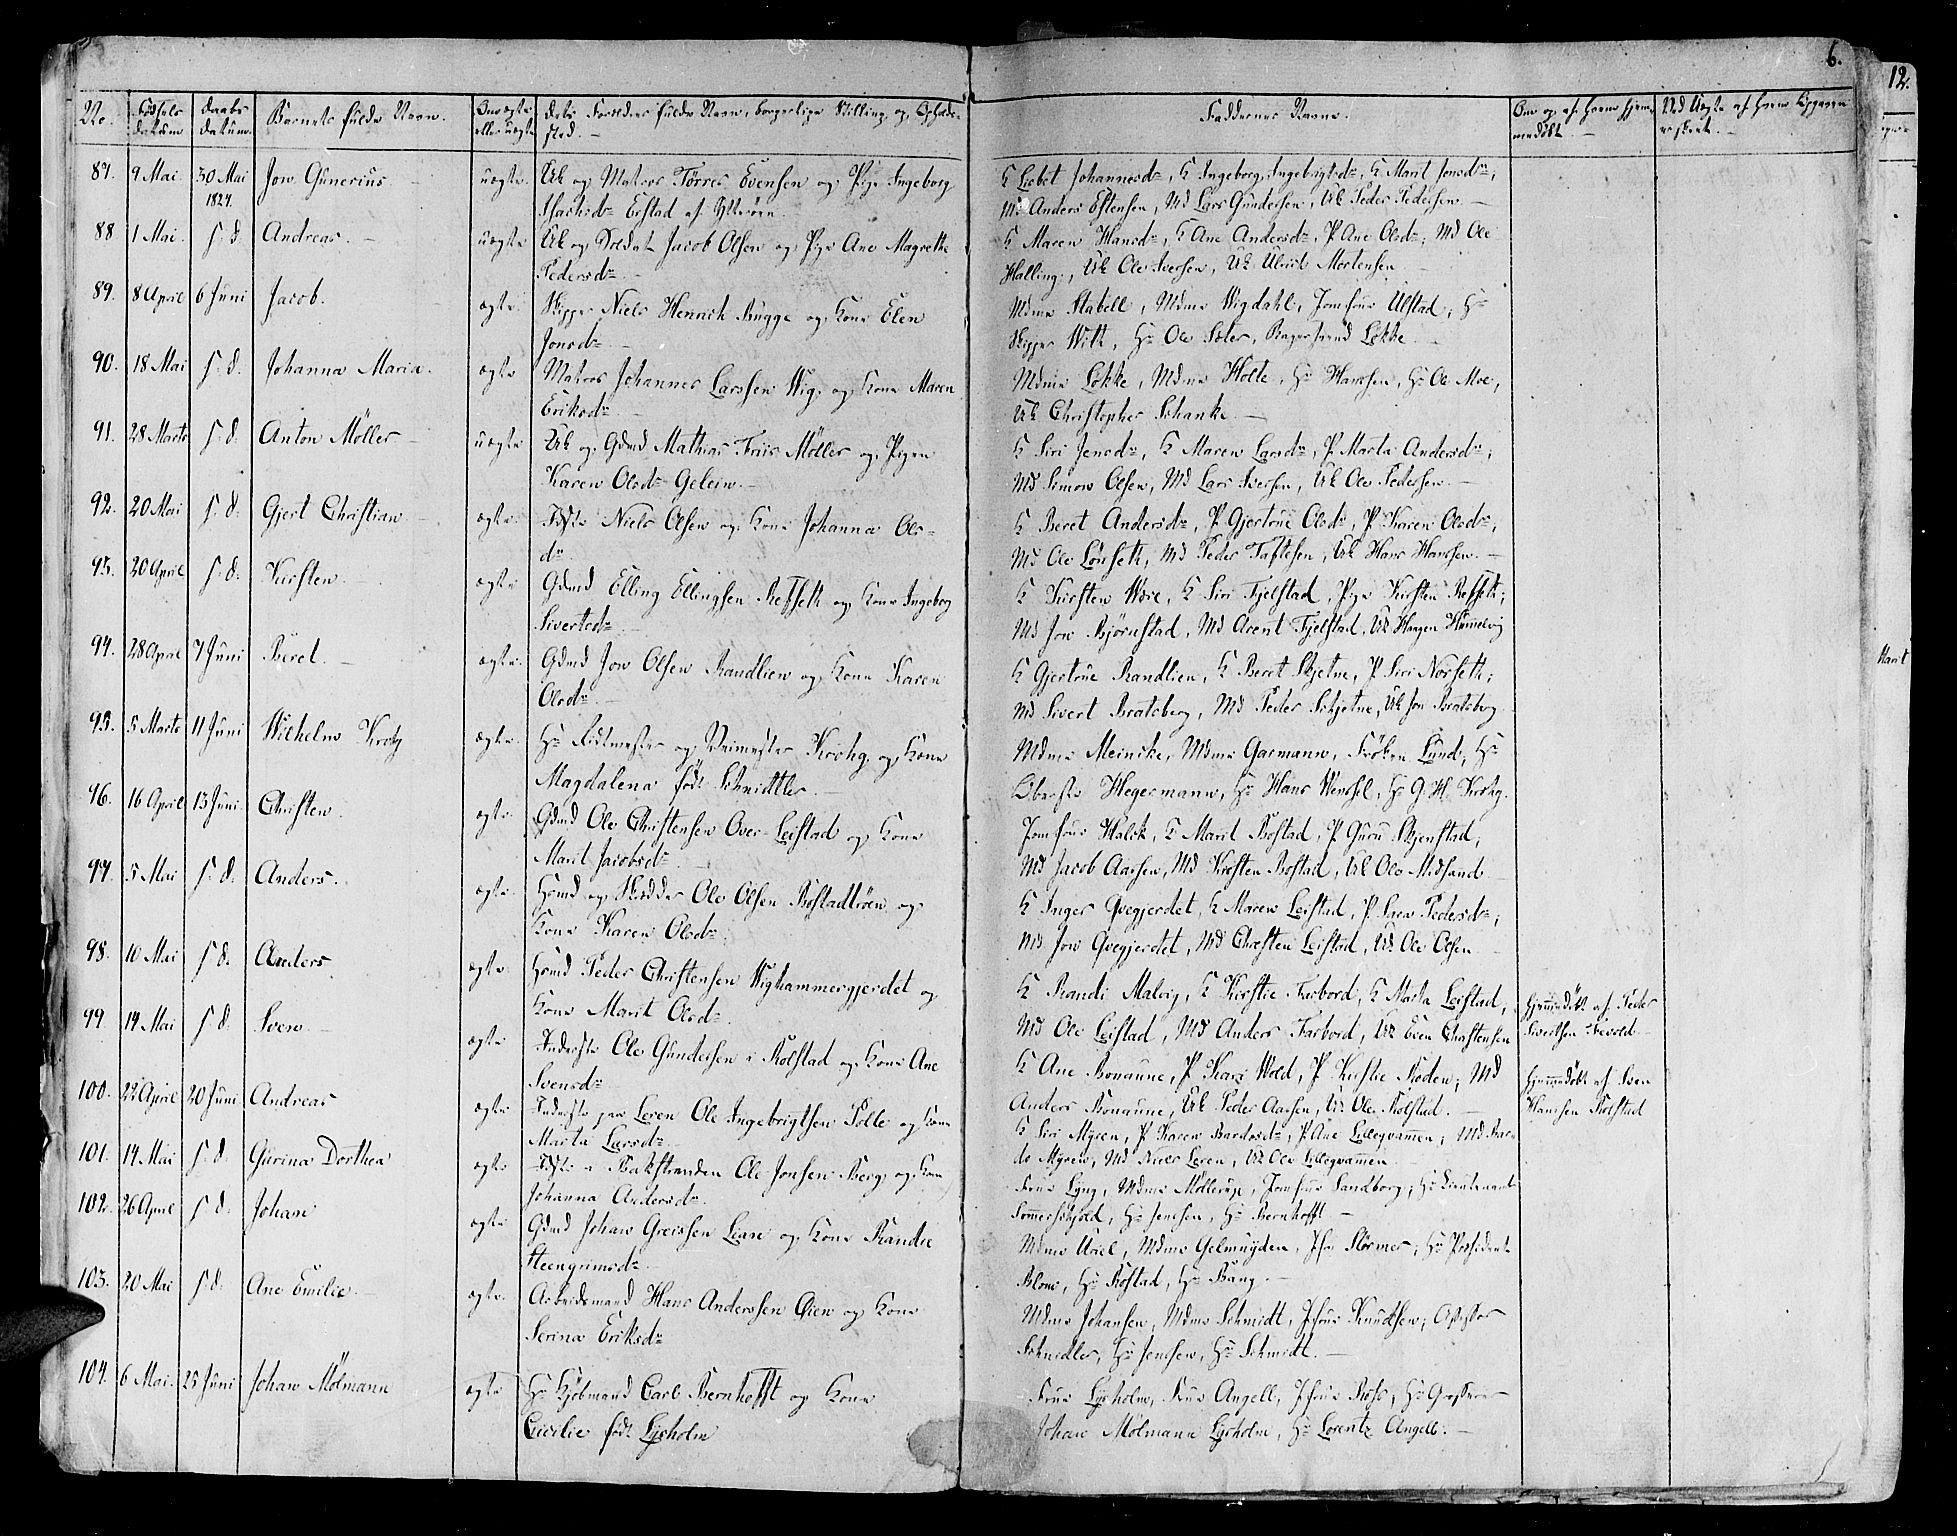 6.
12.
No. Fødsels Datum Daabs Datum Barnets fulde Navn. Om ægte eller uægte Dets Forældres fulde Navn, borgerlige Stilling og Opholdssted. Faddernes Navne. Om og af hvem hjemmedøbt
87. 9 Mai 30 Mai 1824. Jon Gunerius uægte Uk og Matros Törres Evensen og Pige Ingeborg
Erstad af Ytterøen
K Lisbet Johannesdr, K Ingeborg Ingebrigtsdr, K Marit Jensdr,
Md Anders Estensen, Md Lars Gundersen, Uk Peder Pedersen
88 1 Mai s. d. Andreas. uægte Uk og Soldat Jacob Olsen og Pige Ane Magrethe
Pedersdr
K Maren Hansdr, K Ane Andersdr, P Ane Olsdr, Md Ole
Halling, Uk Ole Iversen, Uk Ulrik Mortensen
89. 8 April 6 Juni Jacob. ægte Skipper Niels Henrich Bugge og Kone Elen
Jonsdr
Mdme Stabell, Mdme Wigdahl, Jomfrue Ulstad, Hr
Skipper With, Hr Ole Sæter, Løkke
90. 18 Mai s. d. Johanna Maria. ægte Matros Johannes Larssen Wig og Kone Maren
Eriksdr
Mdme Løkke, Mdme Holte, Hr Hanssen, Hr Ole Moe,
Uk Christopher Schanke
91. 28 Marts s. d. Anton Möller uægte Uk og Gdmd Mathias Friis Möller og Pigen
Karen Olsdr Gelein
K Siri Jensdr, K Maren Larsdr, P Marta Andersdr,
Md Simon Olsen, Md Lars Iversen, Uk Ole Pedersen
92. 20 Mai s. d. Gjert Christian ægte Niels Olsen og Kone Johanna Ols-
dr
K Beret Andersdr, P Gjertrue Olsdr, P Karen Olsdr,
Md Ole Lönseth, Md Peder Taftesen, Uk Hans Hanssen
93. 20 April s. d. Kirsten ægte Gdmd Elling Ellingsen Refseth og Kone Ingeborg
Sivertsdr
K Kirsten Være, K Siri Fjelstad, Pige Kirsten Refseth;
Md Jon Björnstad, Md Arent Fjelstad, Uk Haagen Hammelvig
94. 28 April 7 Juni Beret ægte Gdmd Jon Olsen Randlien og Kone Karen
Olsdr
K Gjertrue Randlien, K Beret Skjetne, P Siri Norseth;
Md Sivert Bratsberg, Md Peder Schjetne, Uk Jon Bratsberg
95. 5 Marts 11 Juni Wilhelm Krohg ægte Hr og Veimester Krohg og Kone
Magdalena født Schnidtler
Mdme Meincke, Mdme Garmann, Fröken Lund, Hr
Oberste Hegermann, Hr Hans Wensel, Hr G. H. Krohg.
96. 16 April 13 Juni Christen. ægte Gdmd Ole Christensen Over-Leistad og Kone
Marit Jacobsdr
Jomfrue Halck, K Marit Bostad, P Guru Skjenstad,
Md Jacob Aassen, Md Kirsten Bostad, Uk Ole Midsand
97. 5 Mai s. d. Anders. ægte Hsmd og Skrædder Ole Olsen Bostadtrøen og
Kone Karen Olsdr
K Inger Qvegjerdet, K Maren Leistad, P Pedersdr,
Md Jon Qvegjerdet, Md Christen Leistad, Uk Ole Olsen
98. 10 Mai s. d. Anders ægte Hsmd Peder Christensen Wighammergjerdet og
Kone Marit Olsdr
K Randi Malvig, K Kirstie Farbord, K Marta Leistad,
Md Ole Leistad, Md Anders Farbord, Uk Even Christensen
Hjemmedöbt af Peder
Sivertsen
99 14 Mai s. d. Sven ægte Inderste Ole Gundersen i Kolstad og Kone Ane
Svensdr
K Ane Bonaune, P Kari Wold, P Kirstie Moden; Md
Anders Bonaune, Uk Peder Aassen, Uk Ole Kolstad.
Hjemmedöbt af Sven
Hanssen Kolstad
100. 22 April 20 Juni Andreas ægte Inderste paa Leren Ole Ingebrigtsen Tolle og Kone
Marta Larsdr
K Siri Myren, P Karen Bardosdr, P Ane Lillegvammen; Md Bar-
do Myren, Md Niels Leren, Uk Ole Lillegvammen
101. 14 Mai s. d. Gurina Dorthea ægte Bakstranden Ole Jonsen Berg og Kone
Johanna Andersdr
Frue Lyng, Mdme Möllerup, Jomfrue Sandborg; Hr Lieutenant
Sommerschjold, Hr Jenssen, Hr Bernhofft
102. 26 April s. d. Johan ægte Gdmd Johan Greissen Lian og Kone Randie
Steengrimsdr
Mdme Uriel, Mdme Gelmuyden, Jfr Störmer; Hr President
Blom, Hr Bostad, Hr Bang.
103. 20 Mai s. d. Ane Emilie ægte Arbeidsmand Hans Anderssen Öien og Kone
Serina Eriksdr
Mdme Johansen, Mdme Schmidt, Jfrue Knudtsen; Assessor
Schnidler, Hr Jenssen, Hr Schmidt.
104. 6 Mai. 25 Juni Johan Mölmann ægte Hr Kjøbmand Carl Bernhofft og Kone
Cicilie født Lysholm
Frue Lysholm, Frue Angell, Jfrue Hr
Johan Mölmann Lysholm, Hr Lorentz Angell.
Marit